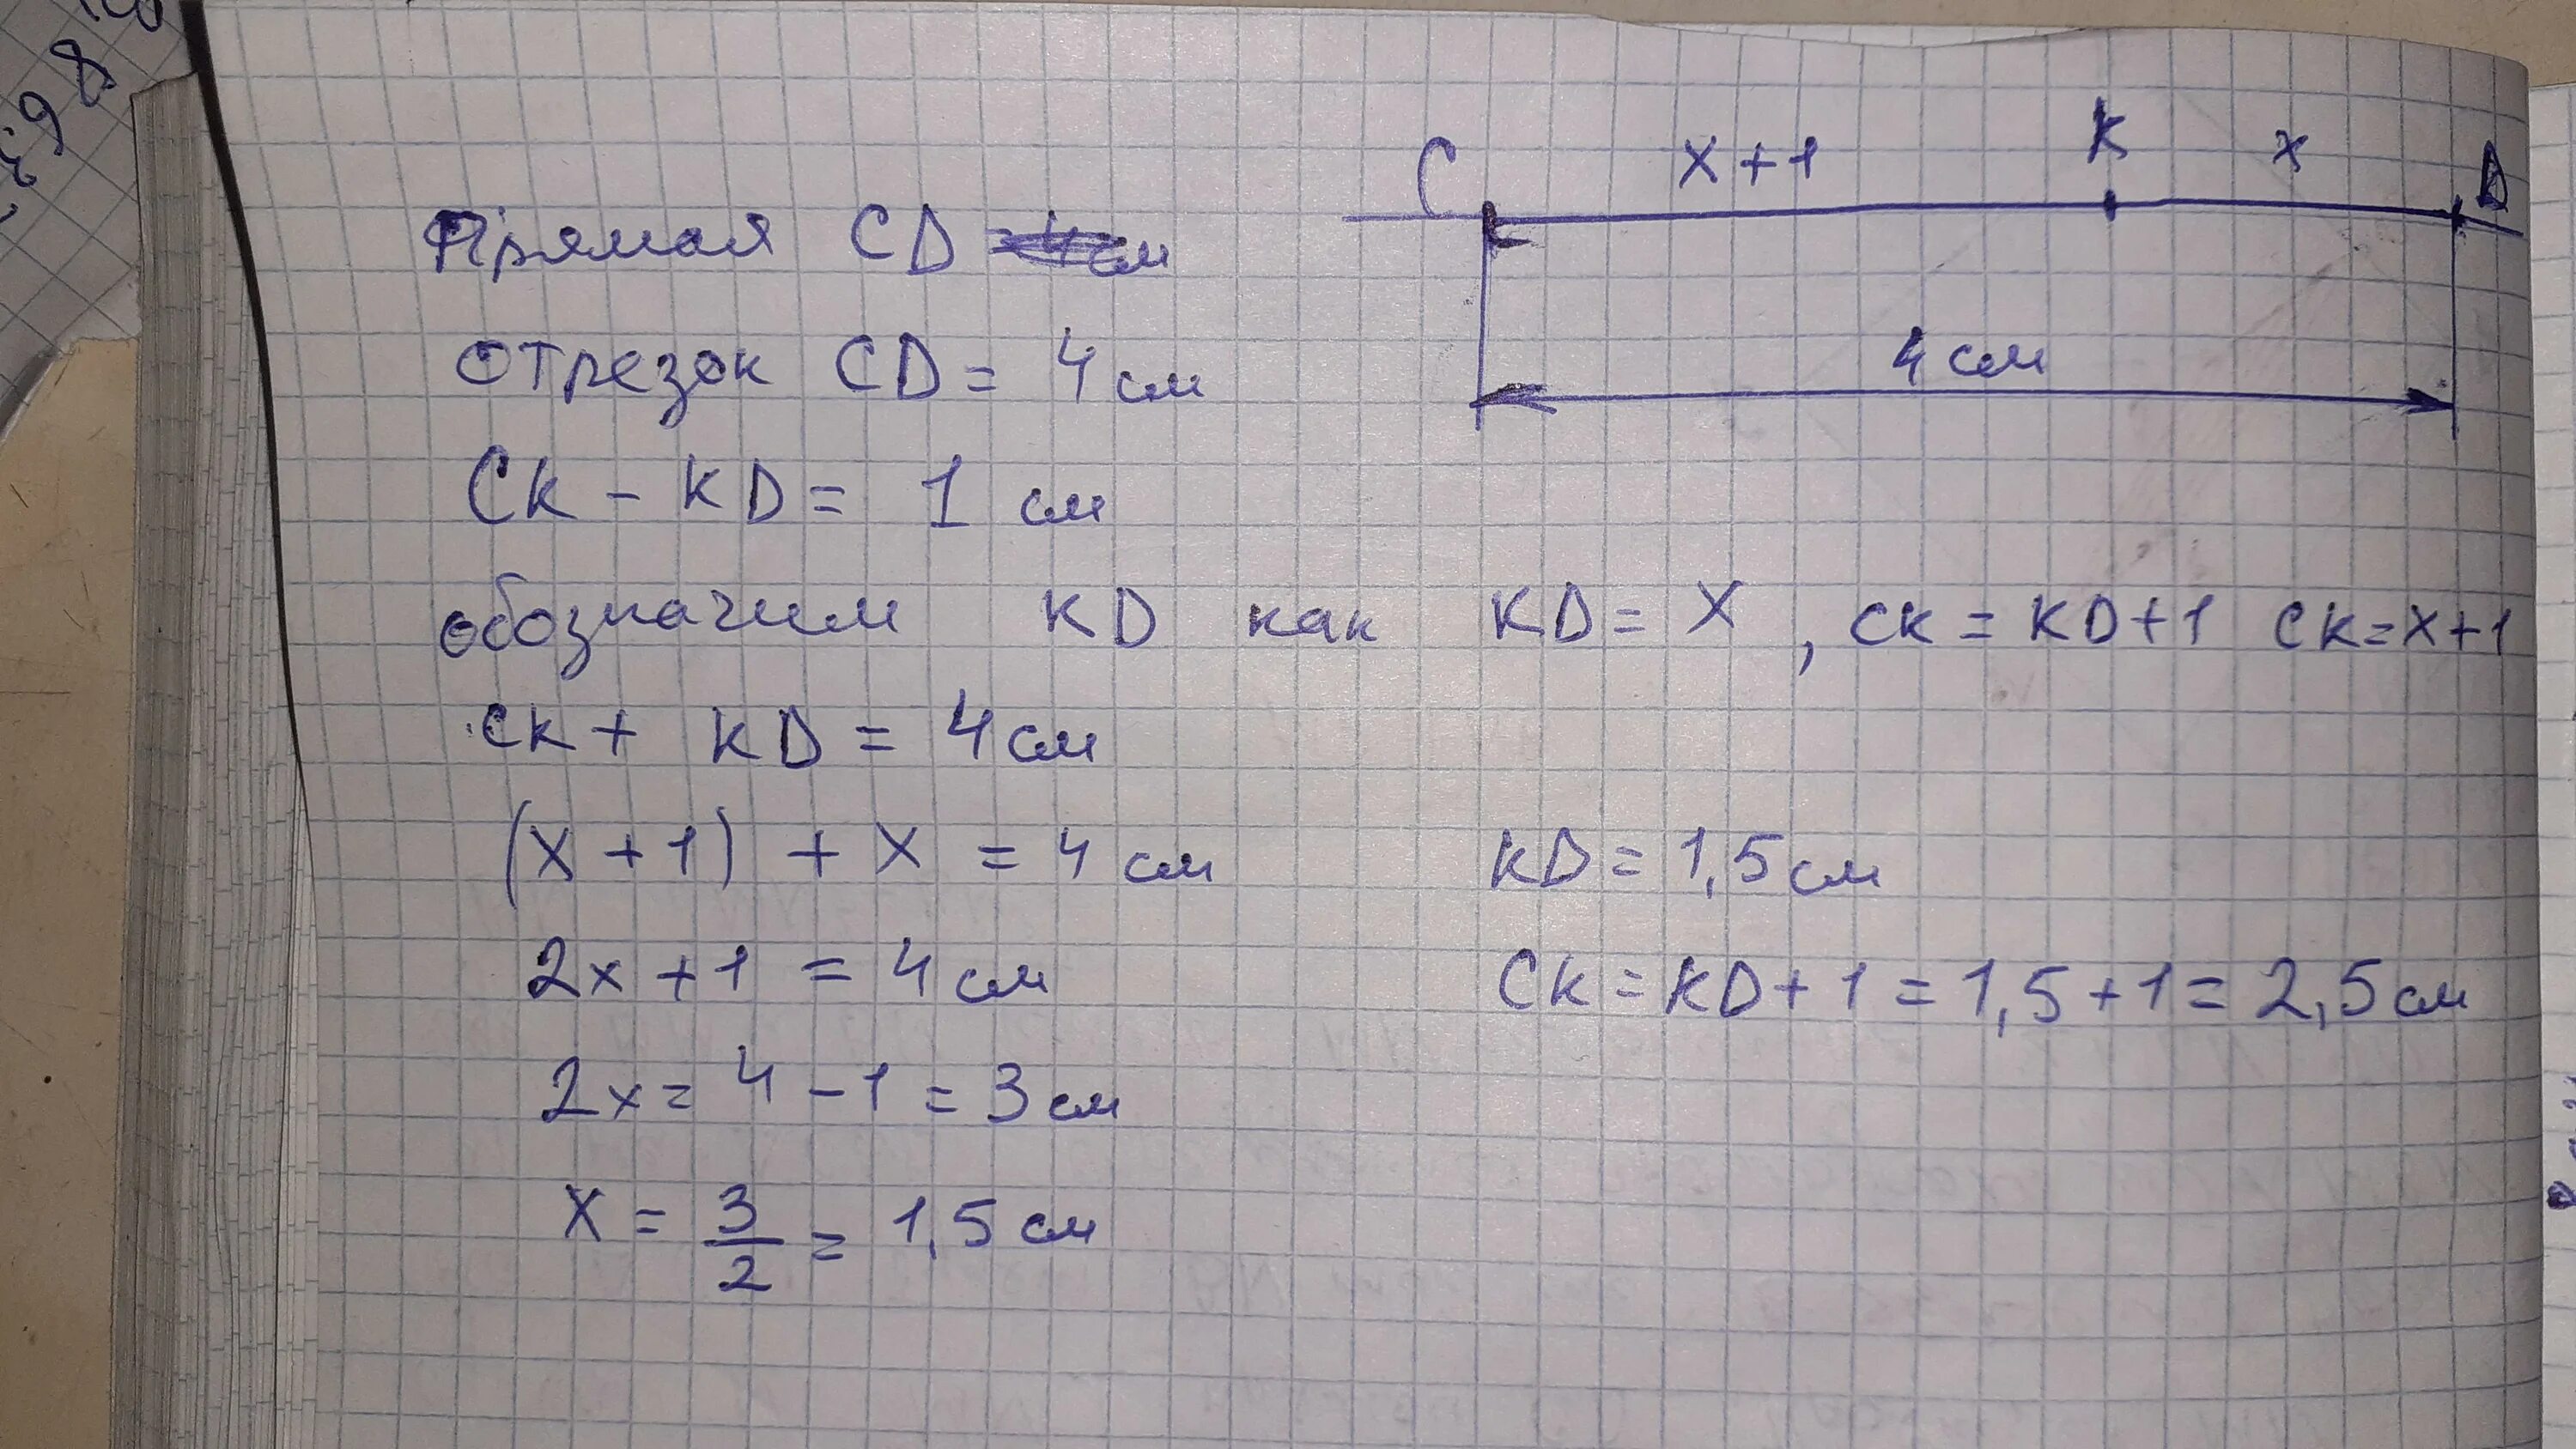 C x+1 K x D
Прямая CD
4 см
отрезок CD = 4 см
CK - KD = 1 см
обозначим KD как KD = X , CK = KD+1 CK=X+1
CK + KD = 4 см
(X + 1) + X = 4 см
KD = 1,5 см
2x + 1 = 4 см
CK = KD + 1 = 1,5 + 1 = 2,5 см
2x = 4 - 1 = 3 см
X = 3/2 = 1,5 см
98